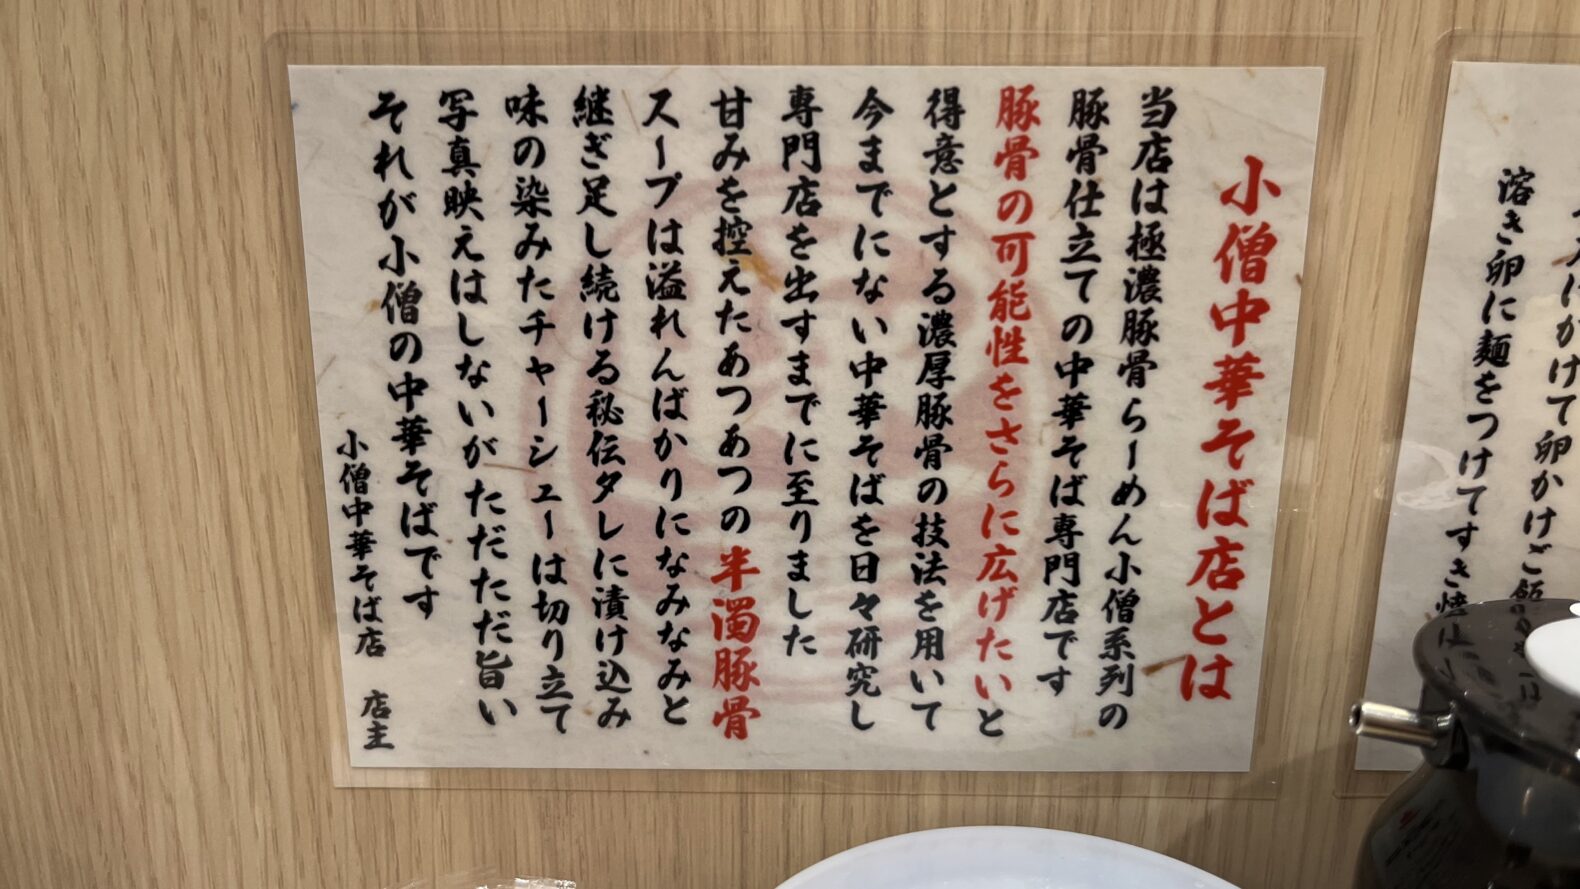 小僧中華そば店とは
当店は極濃豚骨らーめん小僧系列の
豚骨仕立ての中華そば専門店です
豚骨の可能性をさらに広げたいと
得意とする濃厚豚骨の技法を用いて
今までにない中華そばを日々研究し
専門店を出すまでに至りました
甘みを控えたあつあつの半濁豚骨
スープは溢れんばかりになみなみと
継ぎ足し続ける秘伝タレに漬け込み
味の染みたチャーシューは切り立て
写真映えはしないがただただ旨い
それが小僧の中華そばです
小僧中華そば店 店主
かけて卵かけご飯
溶き卵に麺をつけてすき焼